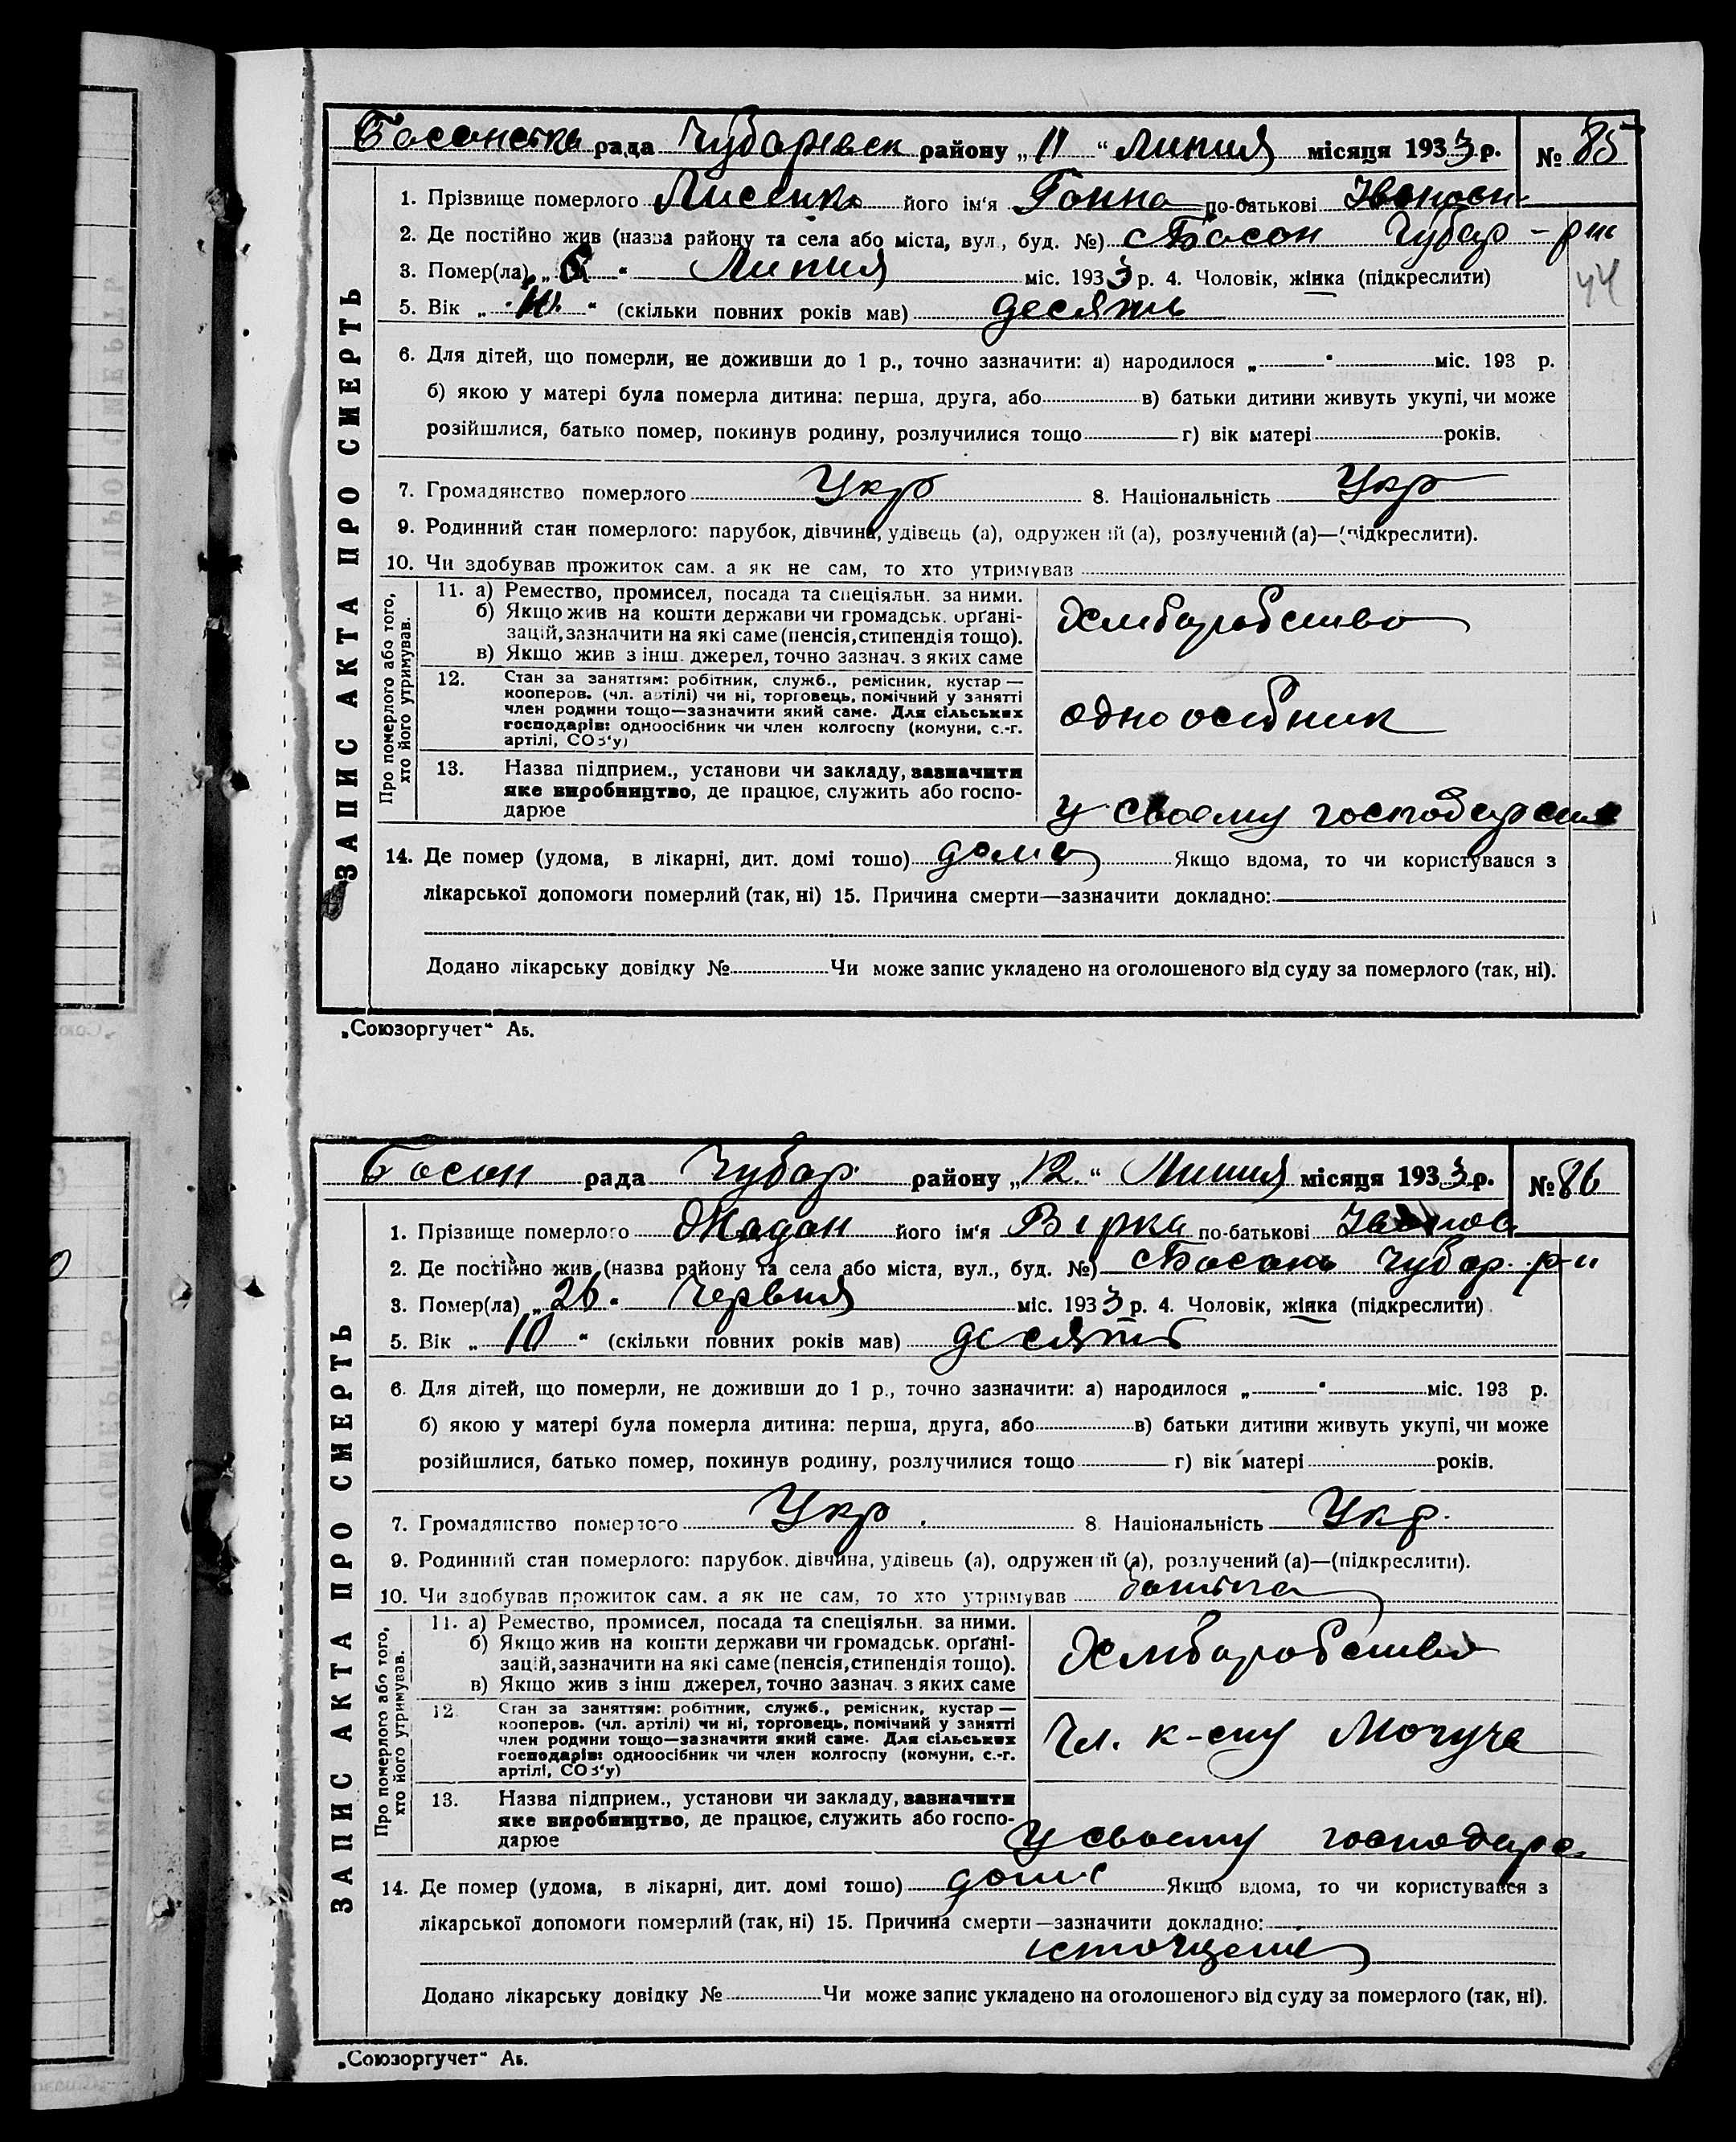 Басанська рада Чубаревськ району „11“ Липня місяця 1933 р. № 85
1. Прізвище померлого Лисенко його ім'я Ганна по-батькові Іванови
2. Де постійно жив (назва району та села або міста, вул., буд. №) с Басан Чубар - рну
3. Помер(ла) „ “ Липня міс. 1933 р. 4. Чоловік, жінка (підкреслити)
44
5. Вік „10“ (скільки повних років мав) десять
6. Для дітей, що померли, не доживши до 1 р., точно зазначити: а) народилося „ “ міс. 193 р.
б) якою у матері була померла дитина: перша, друга, або в) батьки дитини живуть укупі, чи може
розійшлися, батько помер, покинув родину, розлучилися тощо г) вік матері років.
7. Громадянство померлого Укр 8. Національність Укр
9. Родинний стан померлого: парубок, дівчина, удівець (а), одружений (а), розлучений (а)—(підкреслити).
10. Чи здобував прожиток сам, а як не сам, то хто утримував
Про померлого або того, хто його утримував.
11. а) Ремество, промисел, посада та спеціяльн. за ними.
б) Якщо жив на кошти держави чи громадськ. орґані-
зацій, зазначити на які саме (пенсія, стипендія тощо).
в) Якщо жив з інш. джерел, точно зазнач. з яких саме
хліборобство
12. Стан за заняттям: робітник, служб., ремісник, кустар —
кооперов. (чл. артілі) чи ні, торговець, помічний у занятті
член родини тощо—зазначити який саме. Для сільських
господарів: одноосібник чи член колгоспу (комуни, с.-г.
артілі, СОЗ'у)
одноосібник
13. Назва підприєм., установи чи закладу, зазначити
яке виробництво, де працює, служить або госпо-
дарює
у своєму господарстві
14. Де помер (удома, в лікарні, дит. домі тошо) дома Якщо вдома, то чи користувався з
лікарської допомоги померлий (так, ні) 15. Причина смерти—зазначити докладно:
Додано лікарську довідку № Чи може запис укладено на оголошеного від суду за померлого (так, ні).
ЗАПИС АКТА ПРО СМЕРТЬ
„Союзоргучет“ А5.
Басан рада Чубар. району „12.“ Липня місяця 1933 р. № 86
1. Прізвище померлого Жадан його ім'я Вірка по-батькові Іванов
2. Де постійно жив (назва району та села або міста, вул., буд. №) с Басань Чубар. р-н
3. Помер(ла) „26“ Червня міс. 1933 р. 4. Чоловік, жінка (підкреслити)
5. Вік „10“ (скільки повних років мав) десять
6. Для дітей, що померли, не доживши до 1 р., точно зазначити: а) народилося „ “ міс. 193 р.
б) якою у матері була померла дитина: перша, друга, або в) батьки дитини живуть укупі, чи може
розійшлися, батько помер, покинув родину, розлучилися тощо г) вік матері років.
7. Громадянство померлого Укр. 8. Національність Укр.
9. Родинний стан померлого: парубок, дівчина, удівець (а), одружений (а), розлучений (а)—(підкреслити).
10. Чи здобував прожиток сам, а як не сам, то хто утримував батька
Про померлого або того, хто його утримував.
11. а) Ремество, промисел, посада та спеціяльн. за ними.
б) Якщо жив на кошти держави чи громадськ. орґані-
зацій, зазначити на які саме (пенсія, стипендія тощо).
в) Якщо жив з інш. джерел, точно зазнач. з яких саме
хліборобство
12. Стан за заняттям: робітник, служб., ремісник, кустар —
кооперов. (чл. артілі) чи ні, торговець, помічний у занятті
член родини тощо—зазначити який саме. Для сільських
господарів: одноосібник чи член колгоспу (комуни, с.-г.
артілі, СОЗ'у)
Чл. к-спу Могуча
13. Назва підприєм., установи чи закладу, зазначити
яке виробництво, де працює, служить або госпо-
дарює
у своєму господарс
14. Де помер (удома, в лікарні, дит. домі тошо) дома Якщо вдома, то чи користувався з
лікарської допомоги померлий (так, ні) 15. Причина смерти—зазначити докладно:
істощение
Додано лікарську довідку № Чи може запис укладено на оголошеного від суду за померлого (так, ні).
ЗАПИС АКТА ПРО СМЕРТЬ
„Союзоргучет“ А5.